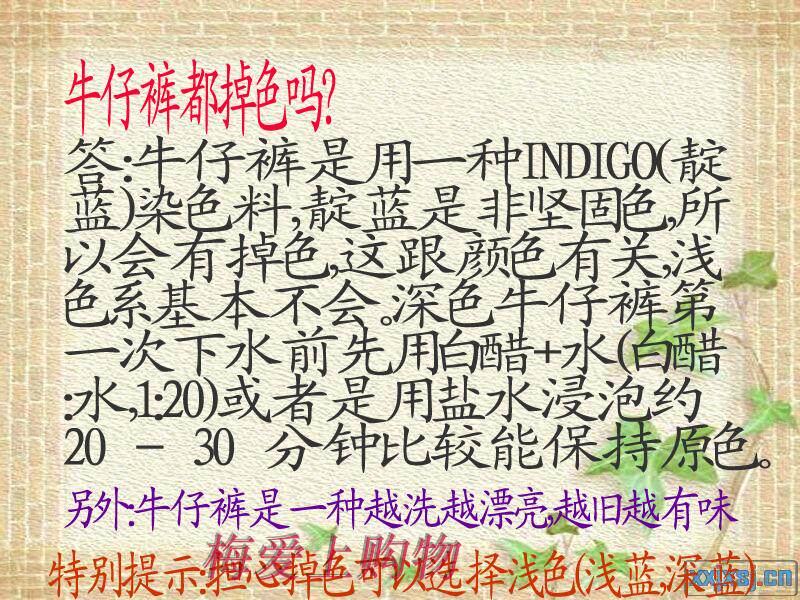 牛仔裤都掉色吗?
答:牛仔裤是用一种INDIGO(靛
蓝)染色料,靛蓝是非坚固色,所
以会有掉色,这跟颜色有关,浅
色系基本不会。深色牛仔裤第
一次下水前先用白醋+水(白醋
:水,1:20)或者是用盐水浸泡约
20 - 30 分钟比较能保持原色。
另外:牛仔裤是一种越洗越漂亮,越旧越有味
梅爱上购物
特别提示:担心掉色可以选择浅色(浅蓝,深蓝)